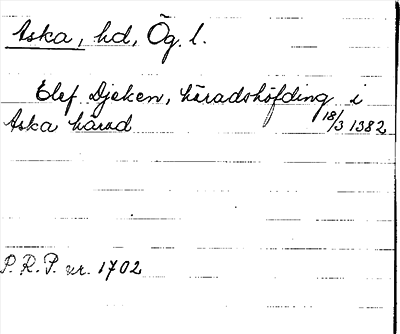 Aska, hd, Ög. l.
Elef Djeken, häradshöfding i
Aska härad 18/3 1382
P. R. P. nr. 1702